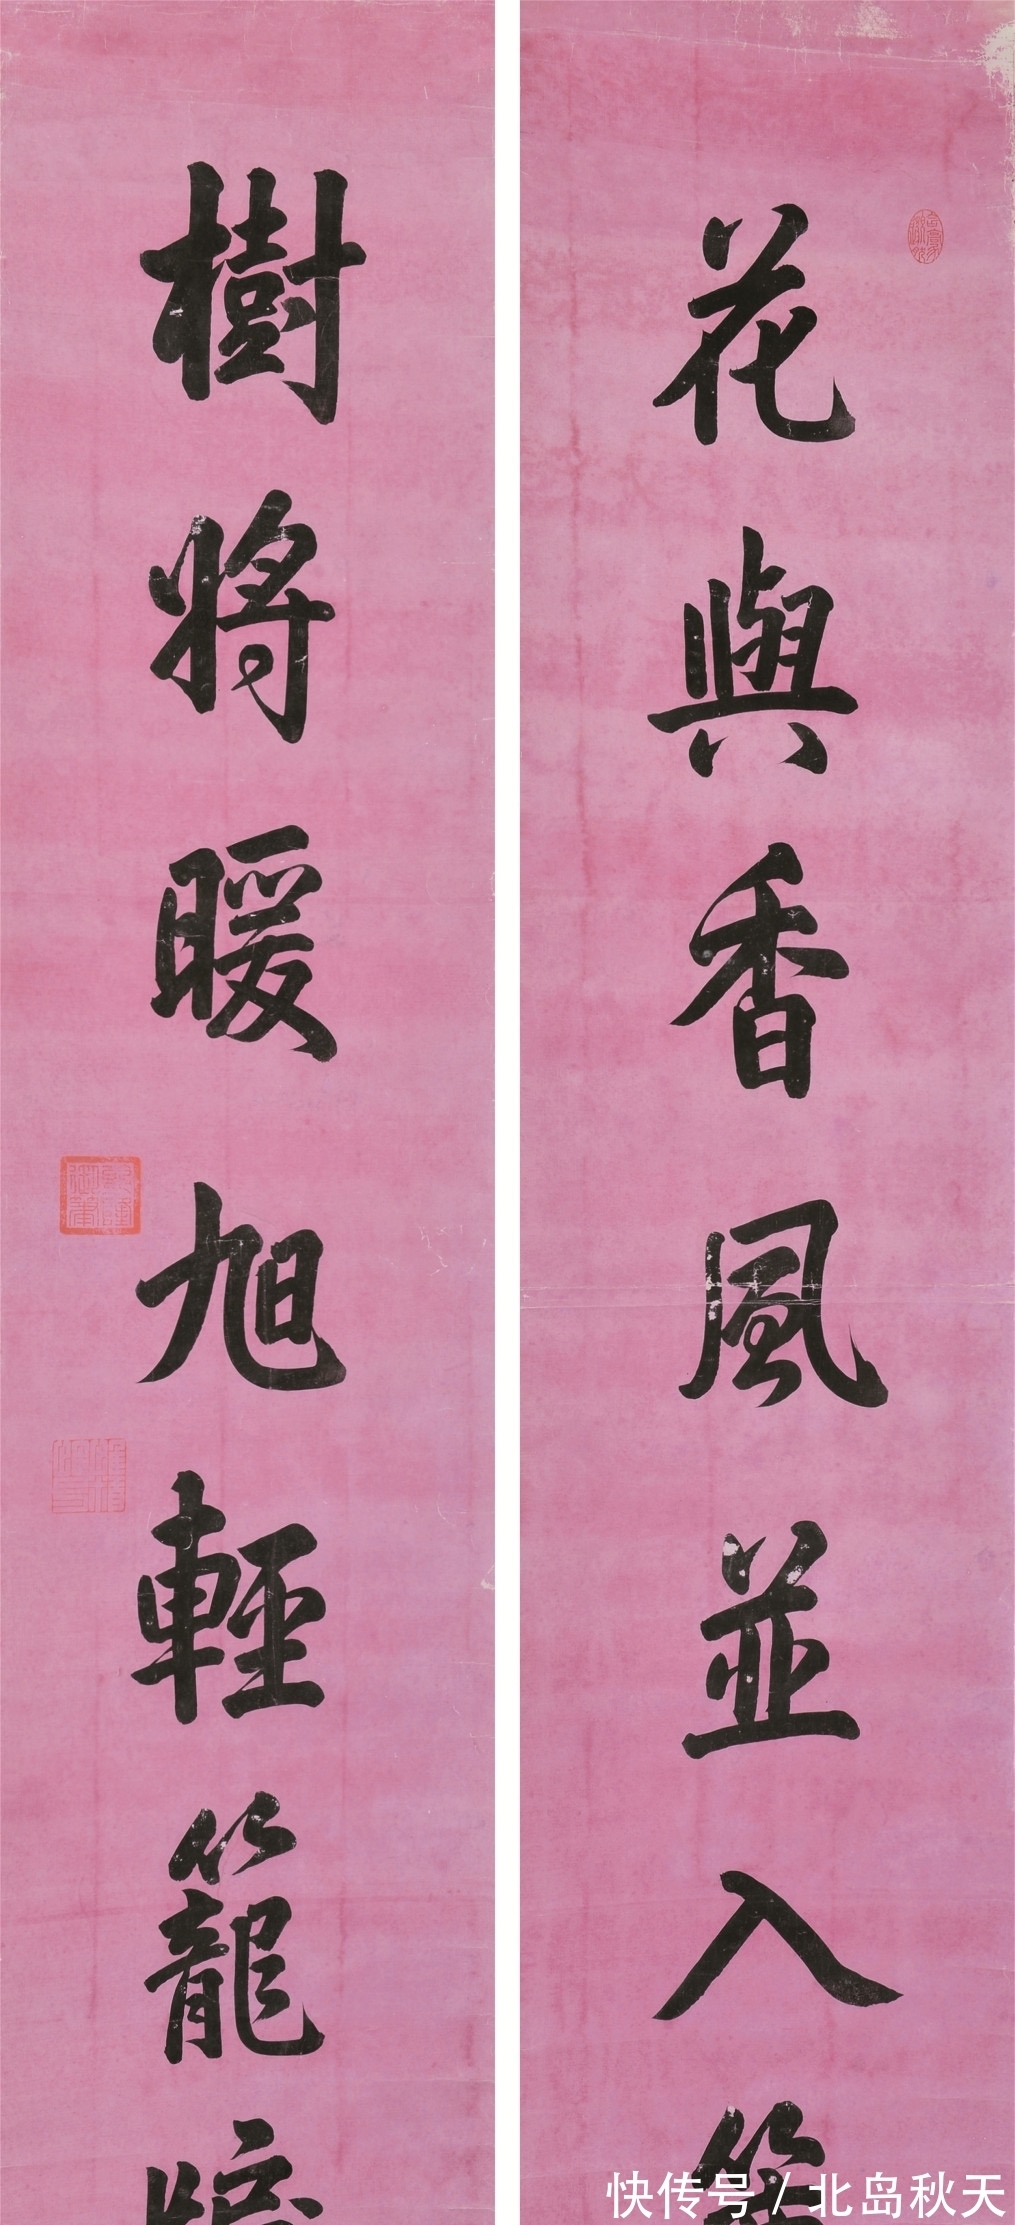 花與香風並入簾
樹將暖旭輕籠牎
快传号 / 北岛秋天